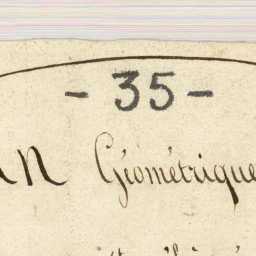 - 35 -
Géométrique